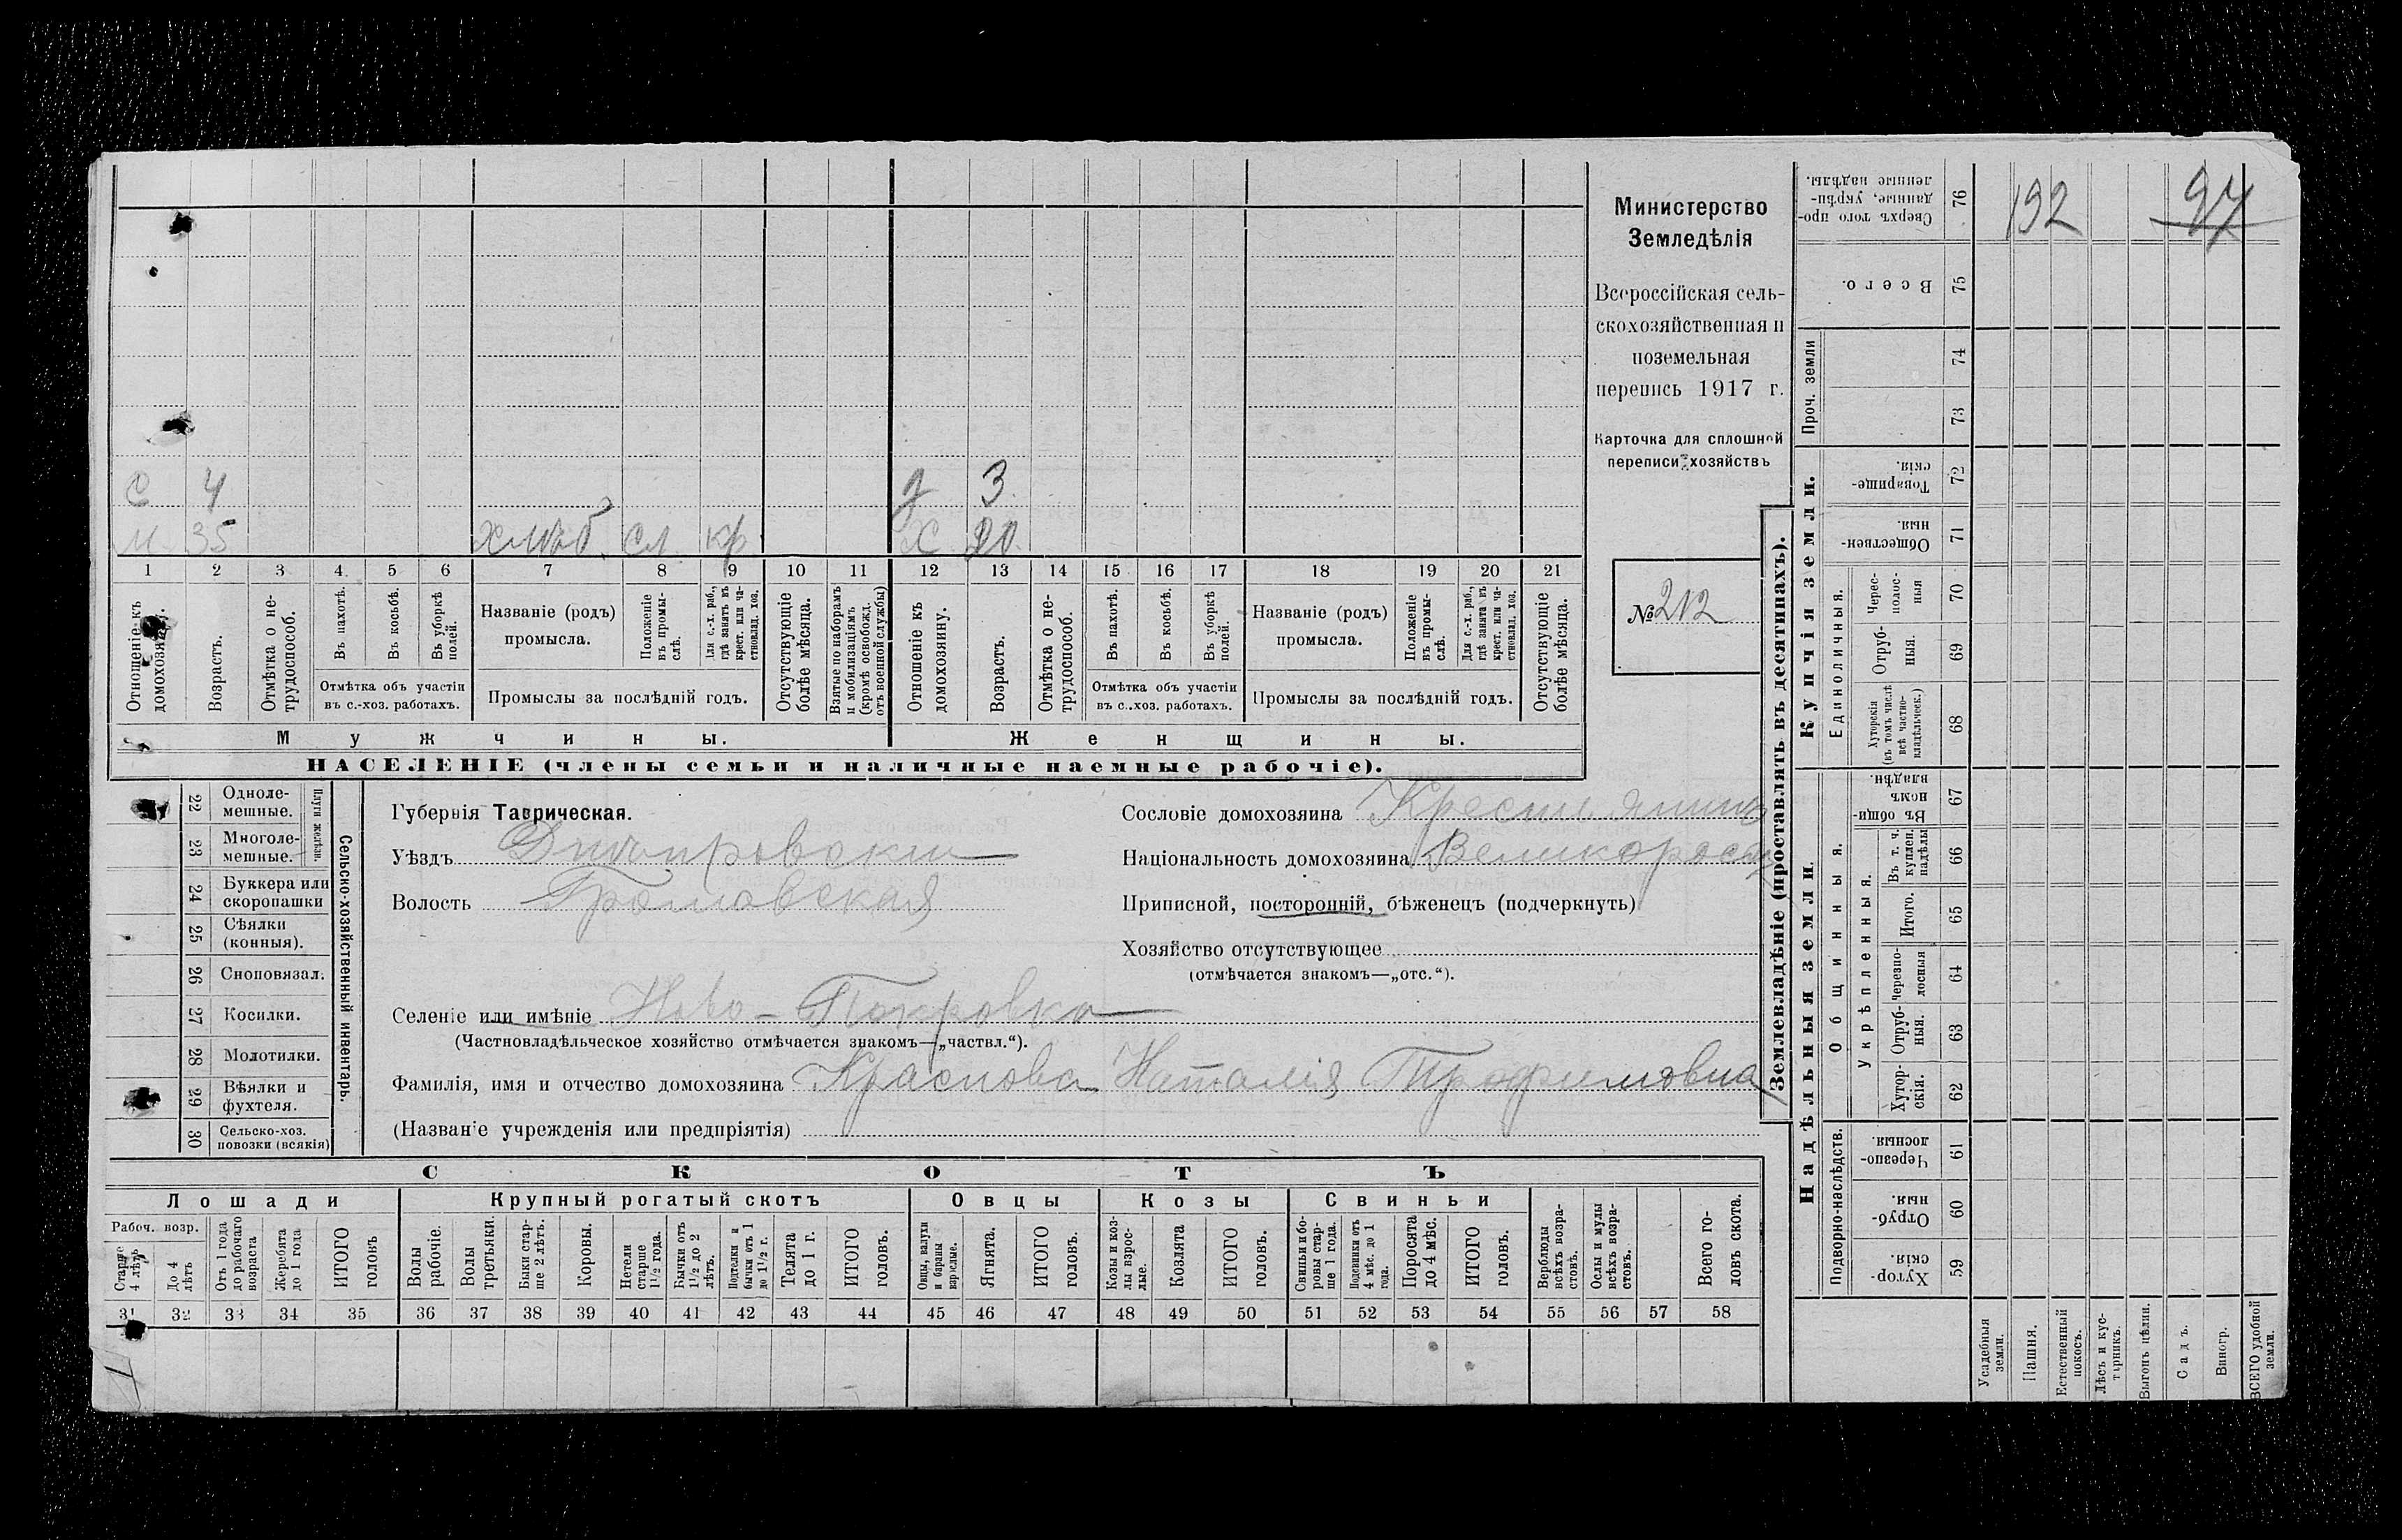 132 97
Министерство
Земледѣлія
Всероссійская сель-
скохозяйственная и
поземельная
перепись 1917 г.
Карточка для сплошной
переписи хозяйствъ
№ 212
с 4 д 3
м 35 хлѣб. сл кр х 20
1 2 3 4 5 6 7 8 9 10 11 12 13 14 15 16 17 18 19 20 21
Отношеніе къ домохозяину.
Возрастъ.
Отмѣтка о не-трудоспособ.
Въ пахотѣ.
Въ косьбѣ.
Въ уборкѣ полей.
Отмѣтка объ участіи
въ с.-хоз. работахъ.
Названіе (родъ)
промысла.
Положеніе въ промы-слѣ.
Для с.-х. раб., гдѣ занятъ въ крест. или ча-стновлад. хоз.
Промыслы за послѣдній годъ.
Отсутствующіе болѣе мѣсяца.
Взятые по наборамъ и мобилизаціямъ (кромѣ освобожд. отъ военной службы)
Отношеніе къ домохозяину.
Возрастъ.
Отмѣтка о не-трудоспособ.
Въ пахотѣ.
Въ косьбѣ.
Въ уборкѣ полей.
Отмѣтка объ участіи
въ с.-хоз. работахъ.
Названіе (родъ)
промысла.
Положеніе въ промы-слѣ.
Для с.-х. раб., гдѣ занятъ въ крест. или ча-стновлад. хоз.
Промыслы за послѣдній годъ.
Отсутствующіе болѣе мѣсяца.
Мужчины. Женщины.
НАСЕЛЕНІЕ (члены семьи и наличные наемные рабочіе).
22 Одноле-мешные.
23 Многоле-мешные.
Плуги желѣзн.
24 Буккера или скоропашки
25 Сѣялки (конныя).
26 Сноповязал.
27 Косилки.
28 Молотилки.
29 Вѣялки и фухтеля.
30 Сельско-хоз. повозки (всякія)
Сельско-хозяйственный инвентарь.
Губернія Таврическая.
Уѣздъ Днѣпровскій
Волость Громовская
Селеніе или имѣніе Ново-Покровка
(Частновладѣльческое хозяйство отмѣчается знакомъ—„частвл.“).
Фамилія, имя и отчество домохозяина Краснова Наталія Трофимовна
(Названіе учрежденія или предпріятія)
Сословіе домохозяина Крестьянинъ
Національность домохозяина Великоросъ
Приписной, посторонній, бѣженецъ (подчеркнуть)
Хозяйство отсутствующее
(отмѣчается знакомъ—„отс.“).
СКОТЪ
Лошади Крупный рогатый скотъ Овцы Козы Свиньи
Рабоч. возр.
Старше 4 лѣтъ
До 4 лѣтъ
Отъ 1 года до рабочаго возраста
Жеребята до 1 года
ИТОГО головъ
Волы рабочіе.
Волы третьяки.
Быки стар-ше 2 лѣтъ.
Коровы.
Нетели старше 1½ года.
Бычки отъ 1½ до 2 лѣтъ.
Подтелки и бычки отъ 1 до 1½ г.
Телята до 1 г.
ИТОГО головъ.
Овцы, валухи и бараны взрослые.
Ягнята.
ИТОГО головъ.
Козы и коз-лы взрос-лые.
Козлята
ИТОГО головъ.
Свиньи и бо-ровы стар-ше 1 года.
Подсвинки отъ 4 мѣс. до 1 года.
Поросята до 4 мѣс.
ИТОГО головъ.
Верблюды всѣхъ возра-стовъ.
Ослы и мулы всѣхъ возра-стовъ.
Всего го-ловъ скота.
31 32 33 34 35 36 37 38 39 40 41 42 43 44 45 46 47 48 49 50 51 52 53 54 55 56 57 58
Землевладѣніе (проставлять въ десятинахъ).
Купчія земли.
Надѣльныя земли.
Сверхъ того про-данные, укрѣ-пленные надѣлы. 76
Всего. 75
Проч. земли 74 73
Товарище-скія. 72
Обществен-ныя. 71
Единоличныя.
Черес-полос-ныя 70
Отруб-ныя. 69
Хуторскія (въ томъ числѣ всѣ частно-владѣльческ.) 68
Общинныя.
Въ общи-номъ владѣн. 67
Укрѣпленныя.
Въ т. ч. куплен. надѣлы 66
Итого. 65
Черезпо-лосныя 64
Отруб-ныя. 63
Хутор-скія. 62
Подворно-наслѣдств.
Черезпо-лосныя. 61
Отруб-ныя. 60
Хутор-скія. 59
Усадебныя земли.
Пашня.
Естественный покосъ.
Лѣсъ и кус-тарникъ.
Выгонъ цѣлин.
Садъ.
Виногр.
ВСЕГО удобной земли.